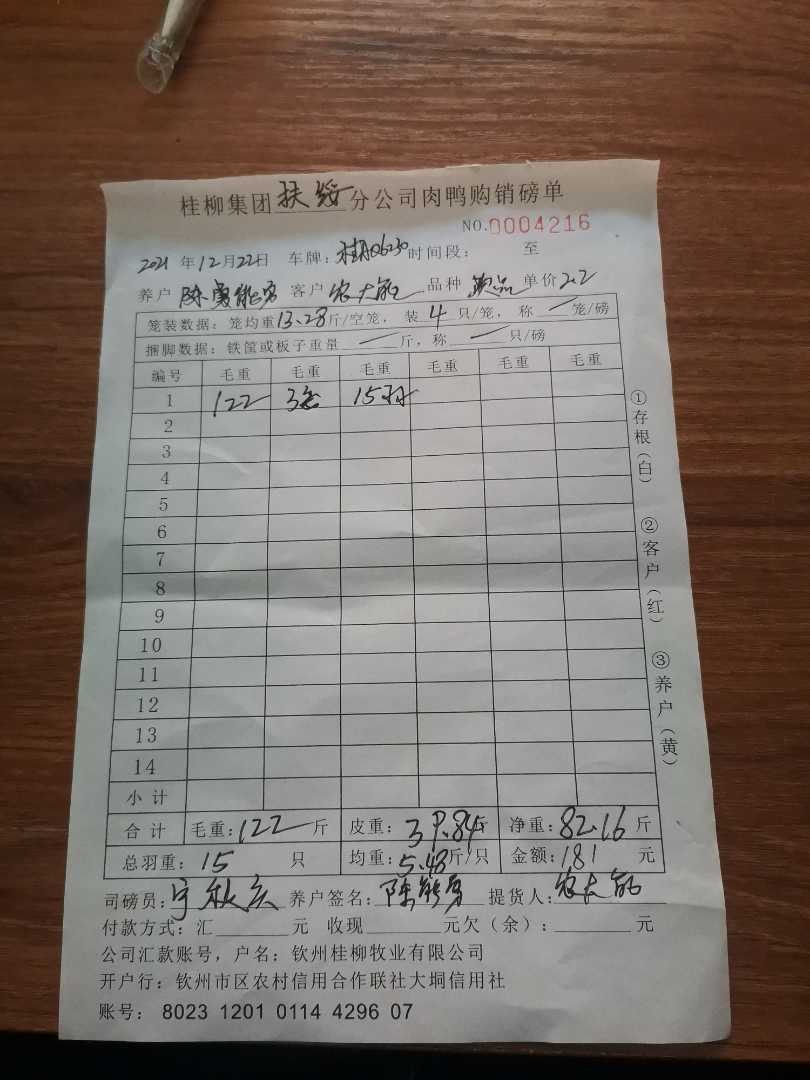 桂柳集团扶绥分公司肉鸭购销磅单
NO.0004216
2021年12月22日 车牌: 06230 时间段: 至
养户 陈 客户 农大 品种 次品 单价 2.2
笼装数据: 笼均重13.28斤/空笼, 装4只/笼, 称 笼/磅
捆脚数据: 铁筐或板子重量 斤, 称 只/磅
编号 毛重 毛重 毛重 毛重 毛重 毛重
1 122 3 15羽
2
3
4
5
6
7
8
9
10
11
12
13
14
小计
合计 毛重:122斤 皮重:39.84斤 净重:82.16斤
总羽重:15只 均重:5.48斤/只 金额:181元
司磅员: 宁秋 养户签名: 陈 提货人: 农大
付款方式: 汇 元 收现 元欠(余): 元
公司汇款账号, 户名: 钦州桂柳牧业有限公司
开户行: 钦州市区农村信用合作联社大垌信用社
账号: 8023 1201 0114 4296 07
①存根(白)
②客户(红)
③养户(黄)